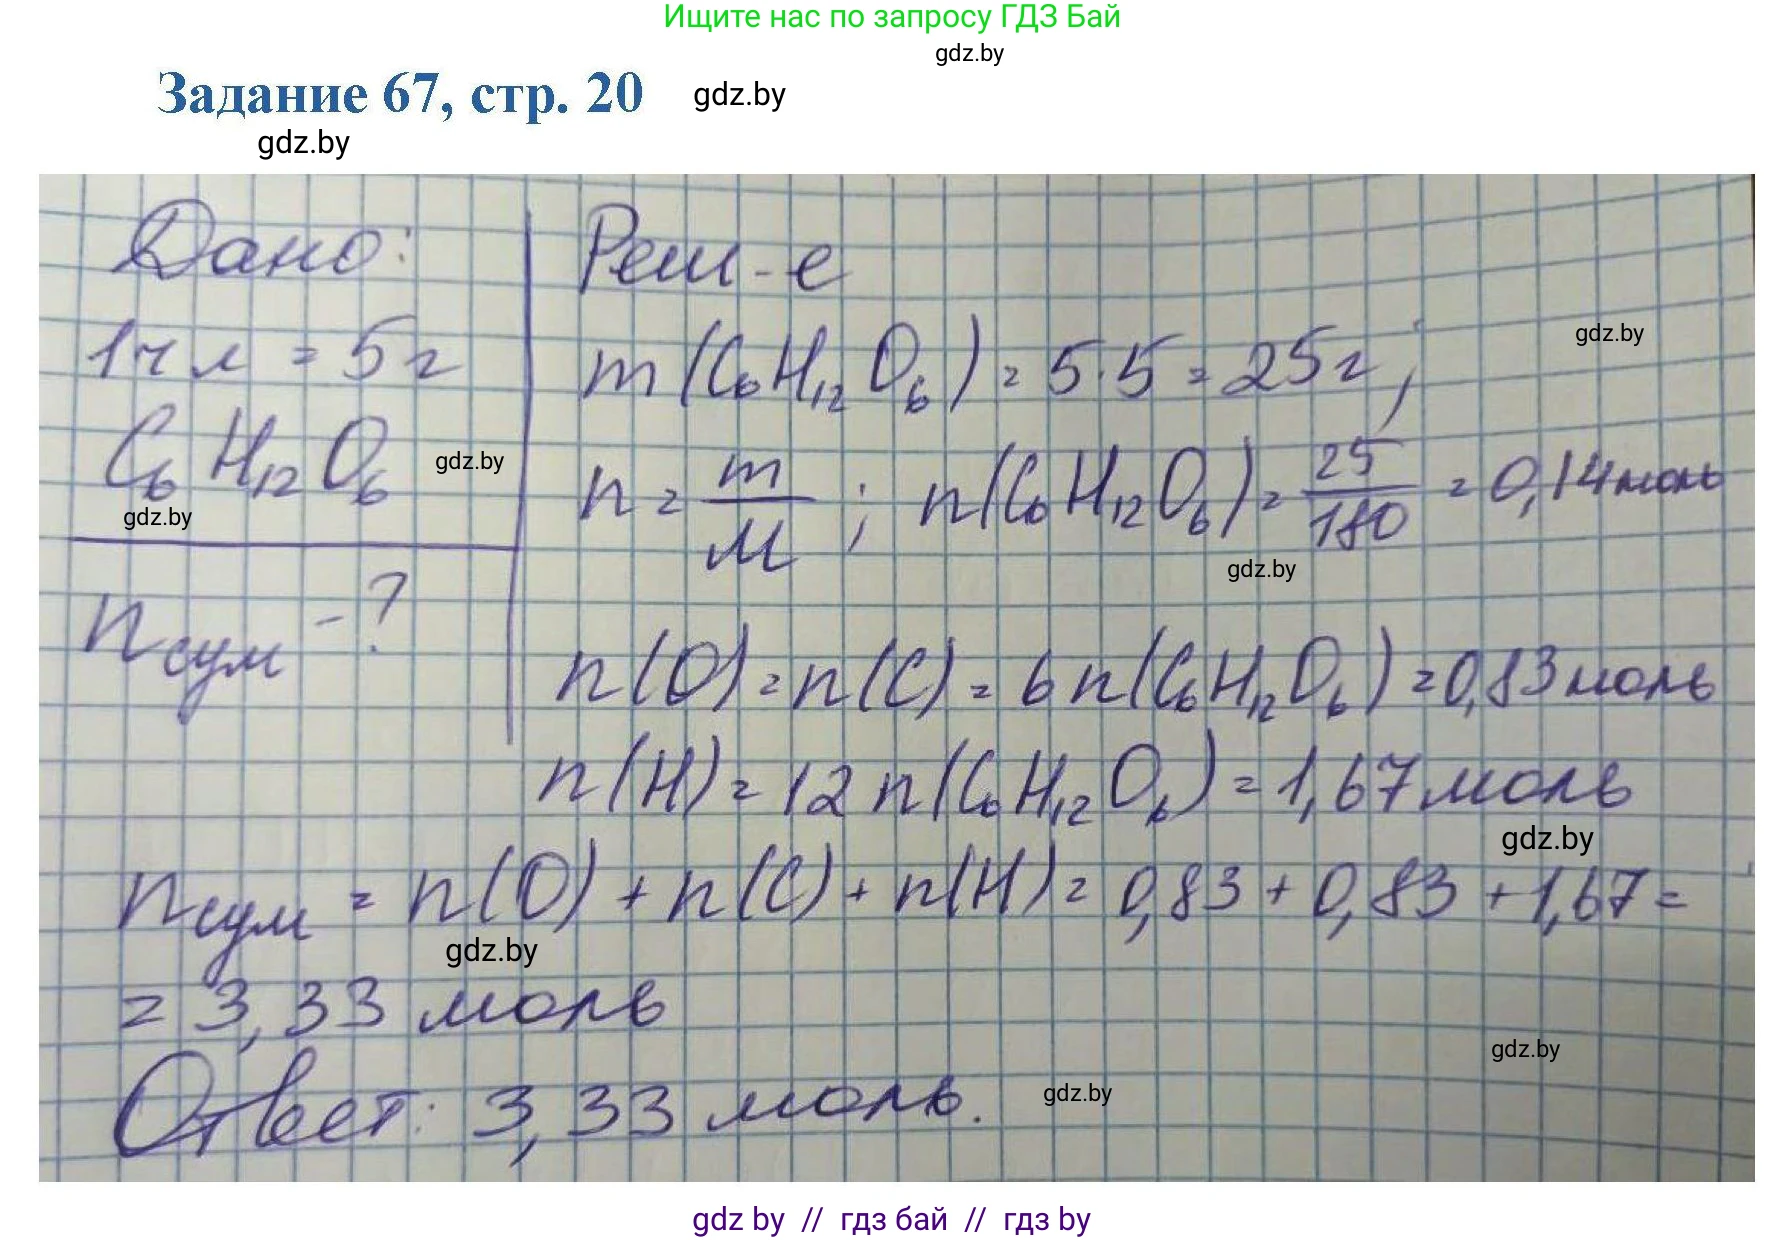 Ищите нас по запросу ГДЗ Бай
gdz.by
Задание 67, стр. 20 gdz.by
gdz.by
Дано:
1 ч л = 5 г
C₆H₁₂O₆
gdz.by
gdz.by
nсум - ?
Реш-е
m(C₆H₁₂O₆) = 5·5 = 25г;
gdz.by
n = m/M; n(C₆H₁₂O₆) = 25/180 = 0,14моль
gdz.by
n(O) = n(C) = 6n(C₆H₁₂O₆) = 0,83моль
n(H) = 12n(C₆H₁₂O₆) = 1,67моль
gdz.by
nсум = n(O) + n(C) + n(H) = 0,83 + 0,83 + 1,67 =
gdz.by
= 3,33 моль
gdz.by
Ответ: 3,33 моль.
gdz.by
gdz by // гдз бай // гдз by